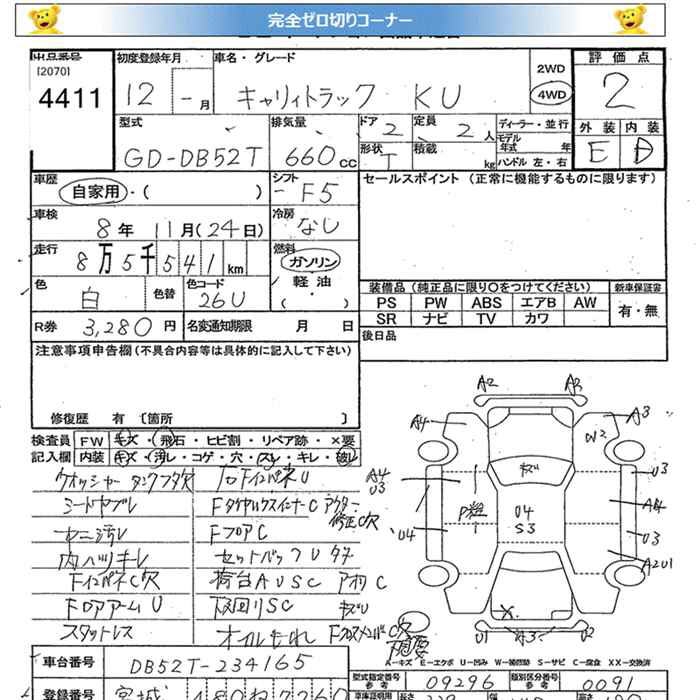 完全ゼロ切りコーナー
出品番号 初度登録年月 車名・グレード 評価点
[2070]
4411 12 - 月 キャリィトラック KU 2WD 4WD 2
型式 排気量 ドア 2 定員 2 人 ディーラー・並行 外装 内装
モデル年式 年
GD-DB52T 660 cc 形状 T 積載 kg ハンドル 左・右 E D
車歴 シフト セールスポイント (正常に機能するものに限ります)
自家用・( ) F5
車検 冷房
8年 11月(24日) なし
走行 燃料
8万5千541km ガソリン
色 色替 色コード 軽油
白 26U ・( ) 装備品(純正品に限り○をつけてください) 新車保証書
PS PW ABS エアB AW 有・無
SR ナビ TV カワ
R券 3,280 円 名変通知期限 月 日 後日品
注意事項申告欄(不具合内容等は具体的に記入して下さい)
修復歴 有 [箇所 ]
検査員 FW キズ・飛石・ヒビ割・リペア跡・×要
記入欄 内装 キズ・汚レ・コゲ・穴・スレ・キレ・破レ
ウォッシャータンクフタ欠 右FインパネU
シートヤブレ
ヤニ汚レ FフロアC
内ハリキレ
FインパネC欠 荷台AUSC アオリC
FロアアームU 下回りSC キズU
スタットレス オイルもれ
A2 A2
A4 A3
W2
A4 U3 キズU U3
U4 A4
U4 S3 U3
A2U1
X
U1 A3 U2
A-キズ E-エクボ U-凹ミ W-補凹跡 S-サビ C-腐食 XX-交換済
車台番号 DB52T-234165 型式指定番号 09296 類別区分番号 0091
登録番号 宮城 480